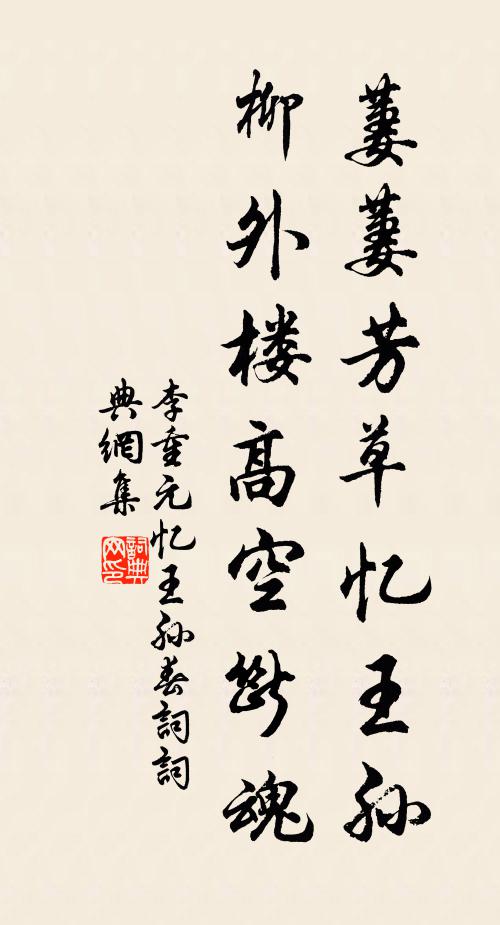 萋萋芳草忆王孙
柳外楼高空断魂
李重元忆王孙春词詞
典網集
詞典网印